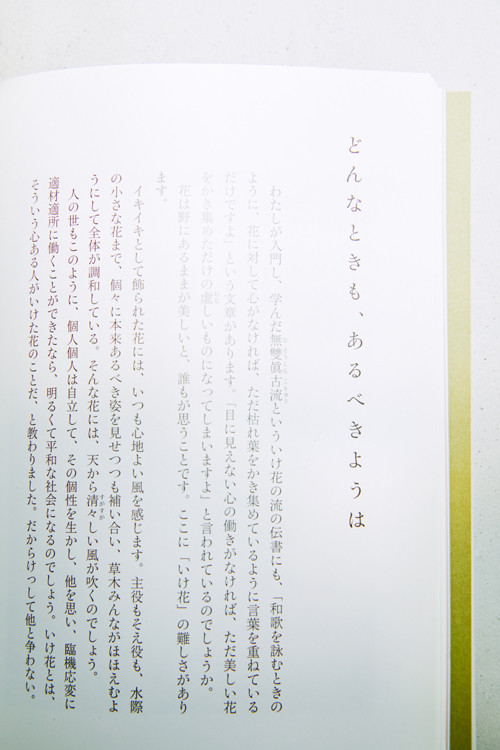 どんなときも、あるべきようは
わたしが入門し、学んだ無雙眞古流といういけ花の流の伝書にも、「和歌を詠むときの
ように、花に対して心がなければ、ただ枯れ葉をかき集めているように言葉を重ねている
だけですよ」という文章があります。「目に見えない心の働きがなければ、ただ美しい花
をかき集めただけの虚しいものになってしまいますよ」と言われているのでしょうか。
花は野にあるままが美しいと、誰もが思うことです。ここに「いけ花」の難しさがあり
ます。
イキイキとして飾られた花には、いつも心地よい風を感じます。主役もそえ役も、水際
の小さな花まで、個々に本来あるべき姿を見せつつも補い合い、草木みんながほほえむよ
うにして全体が調和している。そんな花には、天から清々しい風が吹くのでしょう。
人の世もこのように、個人個人は自立して、その個性を生かし、他を思い、臨機応変に
適材適所に働くことができたなら、明るくて平和な社会になるのでしょう。いけ花とは、
そういう心ある人がいけた花のことだ、と教わりました。だからけっして他と争わない。